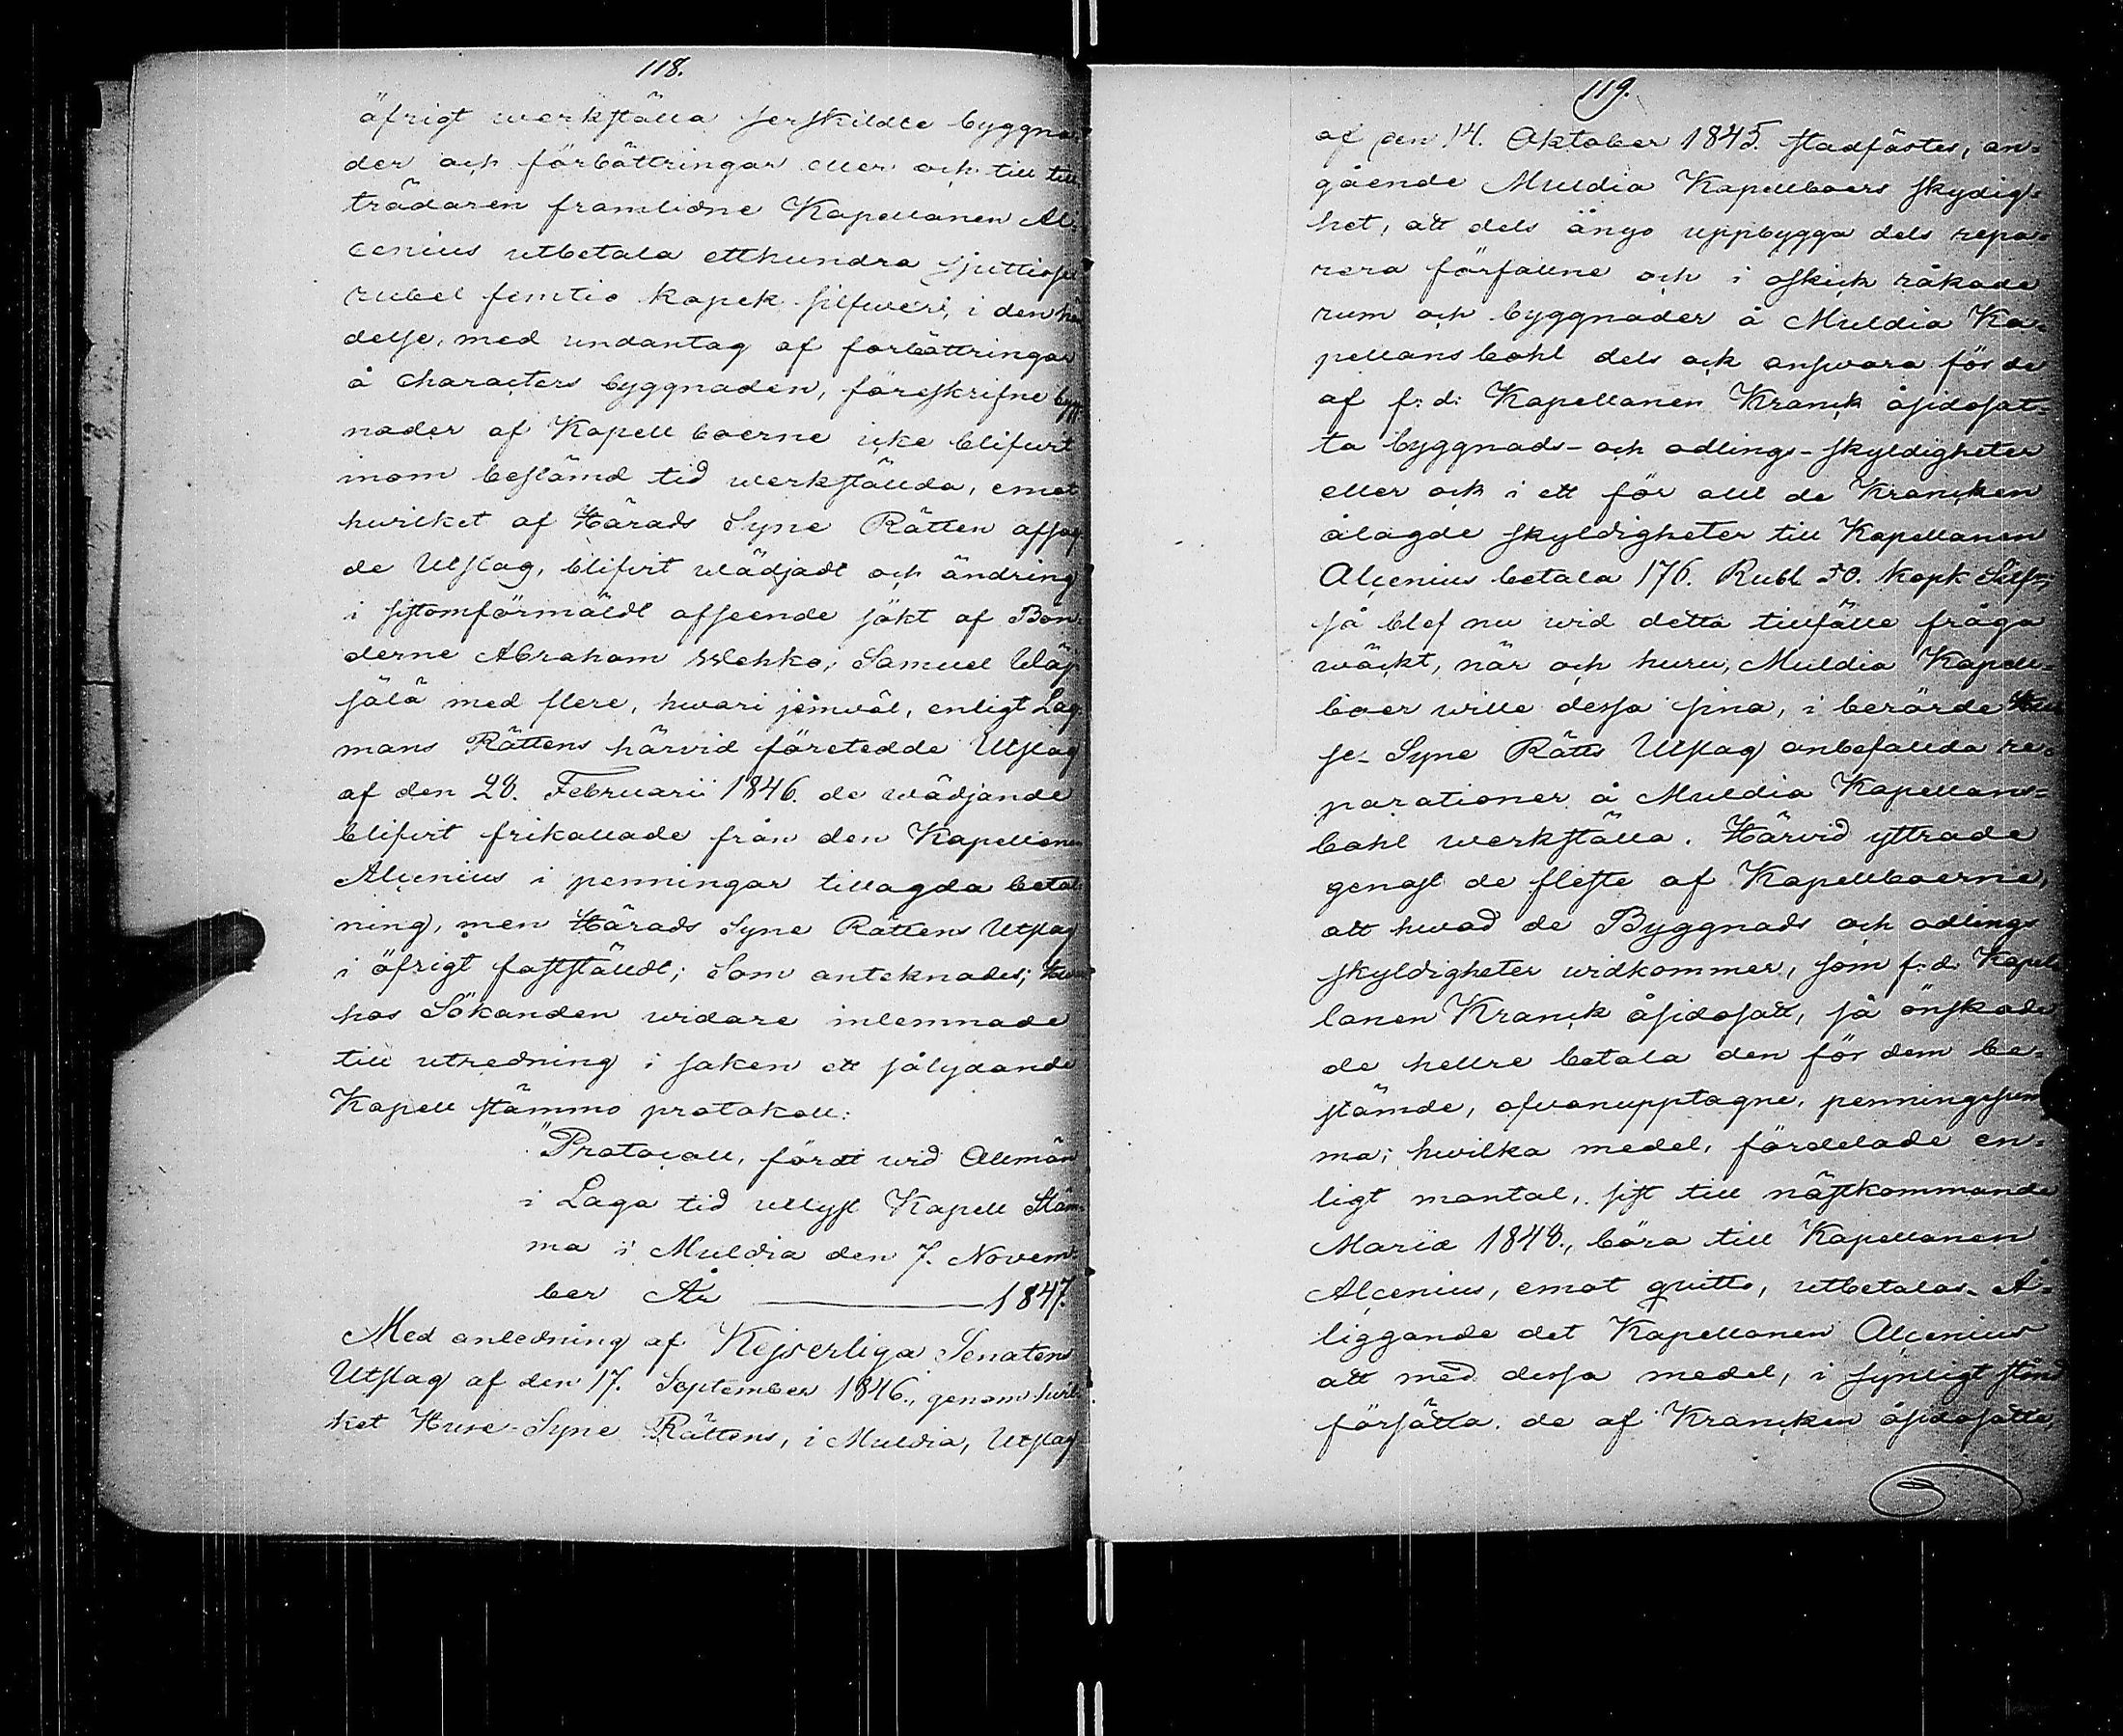 118.
öfrigt werkställa serskildte byggna-
der och förbättringar eller och till till-
trädaren framlidne Kapellanen Al-
cenius utbetala etthundra sjuttiosex
rubel femtio kopek silfwer, i den hän-
delse, med undantag af förbättringar
å characters byggnaden, föreskrifne bygg-
nader af Kapell boerne icke blifwit
inom bestämd tid werkställda, emot
hwilket af Härads Syne Rätten afsag-
de Utslag, blifvit wädjadt och ändring
i sistomförmäldt afseende sökt af Bön-
derne Abraham Lehko, Samuel
sälä med flere, hwari jemwäl, enligt Lag-
mans Rättens härvid företedde Utslag
af den 28. Februarii 1846. de wädjande
blifvit frikallade från den Kapellanen
Alcenius i penningar tillagda betal-
ning, men Härads Syne Rättens Utslag
i öfrigt fastställdt; Som anteknades; hwar-
hos Sökanden widare inlemnade
till utredning i saken ett sålydande
Kapell stämmo protokoll:
"Protocoll, fördt wid Allmän
i Laga tid utlyst Kapell Stäm-
ma i Muldia den 7. Novem-
ber År 1847.
Med anledning af Kejserliga Senatens
Utslag af den 17. September 1846., genom hwil-
ket Huse-Syne Rättens, i Muldia, Utslag
119.
af den 14. Oktober 1845. stadfästes, an-
gående Muldia Kapellboers skydig-
het, att dels ånyo uppbygga dels repa-
rera förfallne och i oskick råkade
rum och byggnader å Muldia Ka-
pellansbohl dels ock answara för de
af f: d: Kapellanen Kranck åsidosat-
ta byggnads- och odlings-skyldigheter
eller ock i ett för allt de Krancken
ålagde skyldigheter till Kapellanen
Alcenius betala 176. Rubl 50. kopk Silfr;
så blef nu wid detta tillfälle fråga
wäckt, när och huru, Muldia Kapell-
boer wille dessa sina, i berörde Hu-
se-Syne Rätts Utslag anbefallda re-
parationer å Muldia Kapellans-
bohl werkställa. Härvid yttrade
genast de fleste af Kapellboerne,
att hwad de Byggnads och odlings
skyldigheter widkommer, som f: d: Kapel-
lanen Kranck åsidosatt, så önskade
de hellre betala den för dem be-
stämde, ofvanupptagne, penningesum-
ma; hwilka medel, fördelade en-
ligt mantal, sist till nästkommande
Mariæ 1848., böra till Kapellanen
Alcenius, emot qvitto, utbetalas. Å-
liggande det Kapellanen Alcenius
att med dessa medel, i synligt stånd
försätta de af Krancken åsidosatte,